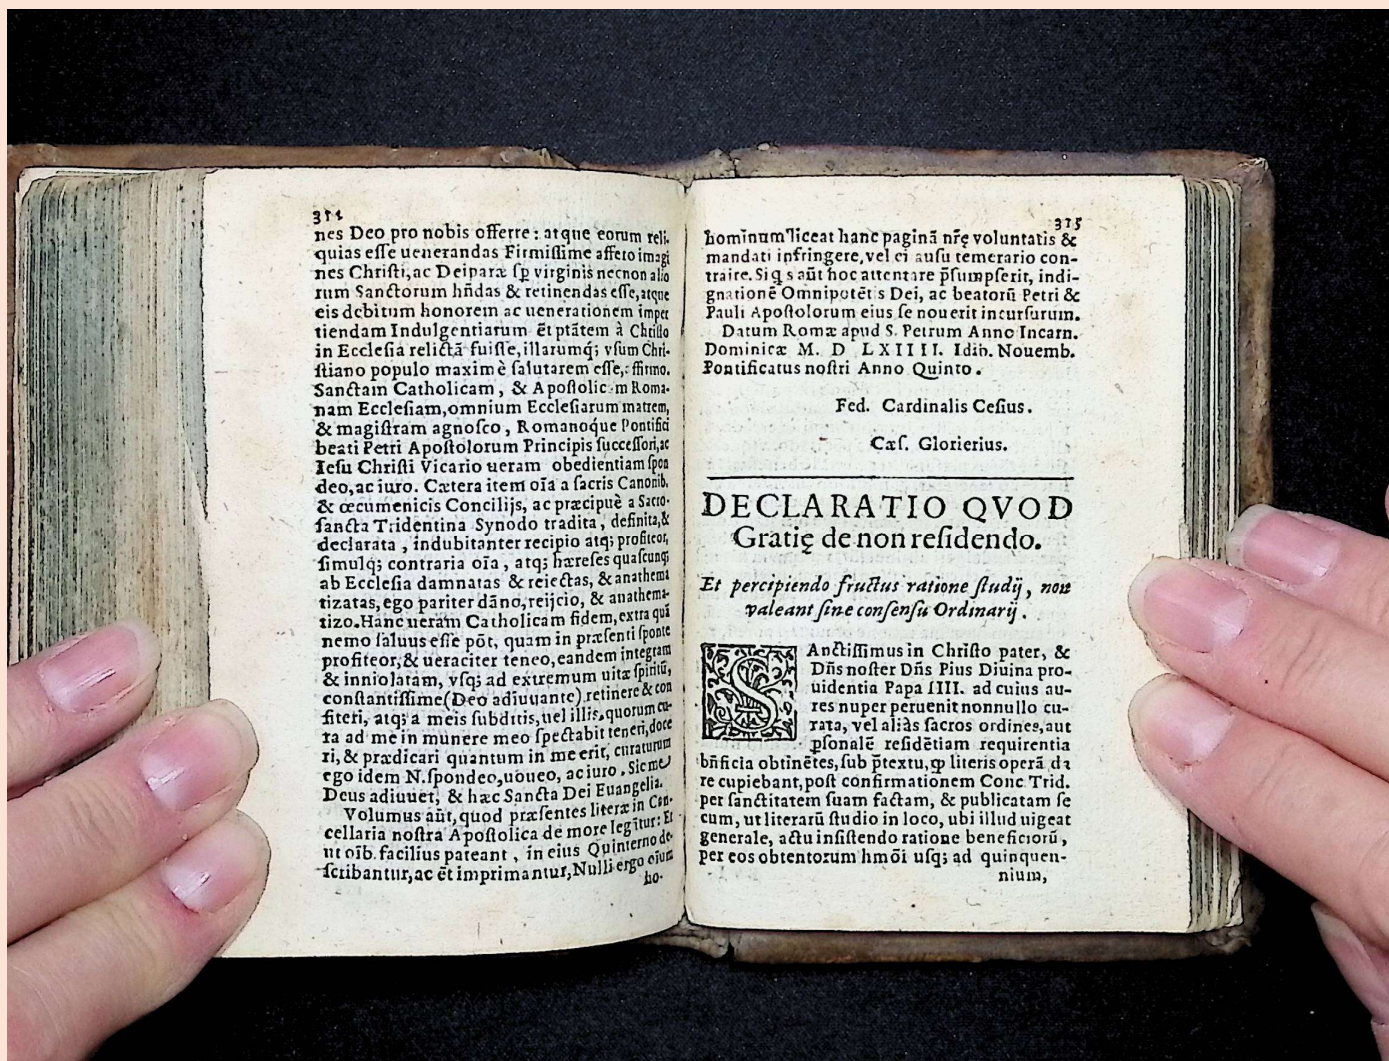 nes Deo pro nobis offerre: atque eorum reli.
quias esse uenerandas Firmissime affero imagi
nes Christi, ac Deiparæ sp̄ virginis necnon alio
rum Sanctorum hñdas & retinendas esse, atque
eis debitum honorem ac uenerationem imper
tiendam Indulgentiarum ēt ptātem à Christo
in Ecclesia relictā fuisse, illarumq; vsum Chri-
stiano populo maximè salutarem esse, affirmo.
Sanctam Catholicam, & Apostolicam Roma-
nam Ecclesiam, omnium Ecclesiarum matrem,
& magistram agnosco, Romanoque Pontifici
beati Petri Apostolorum Principis successori, ac
Iesu Christi Vicario ueram obedientiam spon
deo, ac iuro. Cætera item oīa a sacris Canonib.
& œcumenicis Concilijs, ac præcipuè a Sacro-
sancta Tridentina Synodo tradita, definita, &
declarata, indubitanter recipio atq; profiteor,
simulq; contraria oīa, atq; hæreses quascunq;
ab Ecclesia damnatas & reiectas, & anathema
tizatas, ego pariter dāno, reijcio, & anathema-
tizo. Hanc ueram Catholicam fidem, extra quā
nemo saluus esse pōt, quam in præsenti sponte
profiteor, & ueraciter teneo, eandem integram
& inniolatam, vsq; ad extremum uitæ spiritū,
constantissime (Deo adiuuante) retinere & con
fiteri, atq; a meis subditis, uel illis, quorum cu-
ra ad me in munere meo spectabit teneri, doce
ri, & prædicari quantum in me erit, curaturum
ego idem N. spondeo, uoueo, ac iuro. Sic me
Deus adiuuet, & hæc Sancta Dei Euangelia.
Volumus aūt, quod præsentes literæ in Can-
cellaria nostra Apostolica de more legītur: Et
ut oīb. facilius pateant, in eius Quinterno de-
scribantur, ac ēt imprimantur, Nulli ergo oīum
ho-
315
hominum liceat hanc paginā nr̄ę voluntatis &
mandati infringere, vel ei ausu temerario con-
traire. Si q s aūt hoc attentare p̄sumpserit, indi-
gnationē Omnipotēt s Dei, ac beatorū Petri &
Pauli Apostolorum eius se nouerit incursurum.
Datum Romæ apud S. Petrum Anno Incarn.
Dominicæ M. D LXIIII. Idib. Nouemb.
Pontificatus nostri Anno Quinto.
Fed. Cardinalis Cesius.
Cæs. Glorierius.
DECLARATIO QVOD
Gratię de non residendo.
Et percipiendo fructus ratione studij, non
valeant sine consensu Ordinarij.
SAnctissimus in Christo pater, &
Dñs noster Dñs Pius Diuina pro-
uidentia Papa IIII. ad cuius au-
res nuper peruenit nonnullo cu-
rata, vel aliàs sacros ordines, aut
p̱sonalē residētiam requirentia
bñficia obtinētes, sub p̄textu, ꝙ literis operā da
re cupiebant, post confirmationem Conc. Trid.
per sanctitatem suam factam, & publicatam se
cum, ut literarū studio in loco, ubi illud uigeat
generale, actu insistendo ratione beneficiorū,
per eos obtentorum hmōi usq; ad quinquen-
nium,